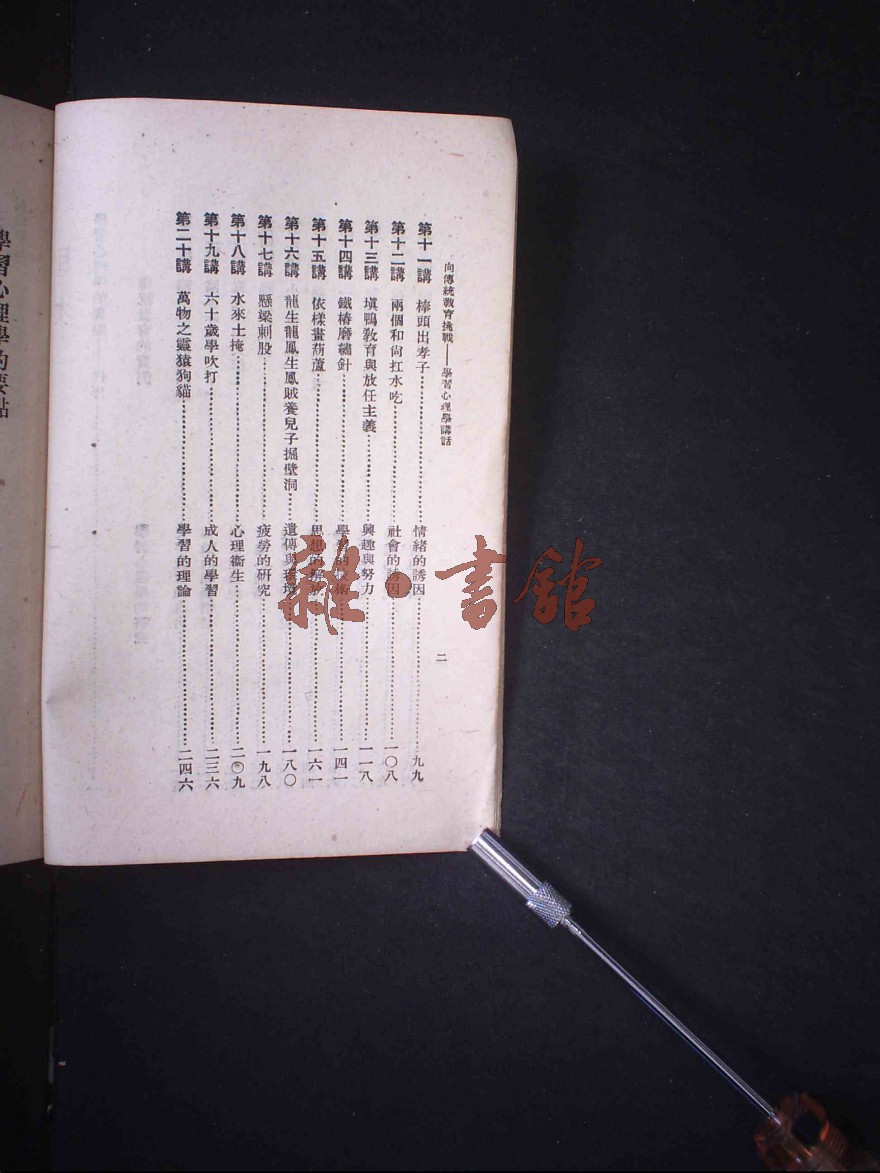 向傳統教育挑戰——學習心理學講話
二
第十一講 棒頭出孝子………情緒的誘因………九九
第十二講 兩個和尙扛水吃………社會的誘因………一〇八
第十三講 塡鴨教育與放任主義………興趣與努力………一一八
第十四講 鐵樁磨繡針………學習的技術………一四一
第十五講 依樣畫葫蘆………思想的解放………一六一
第十六講 龍生龍鳳生鳳賊養兒子掘壁洞………遺傳與環境………一八〇
第十七講 懸梁刺股………疲勞的研究………一九八
第十八講 水來土掩………心理衞生………二〇九
第十九講 六十歲學吹打………成人的學習………二三六
第二十講 萬物之靈猿狗貓………學習的理論………二四六
學習心理學的要點
雜·書館